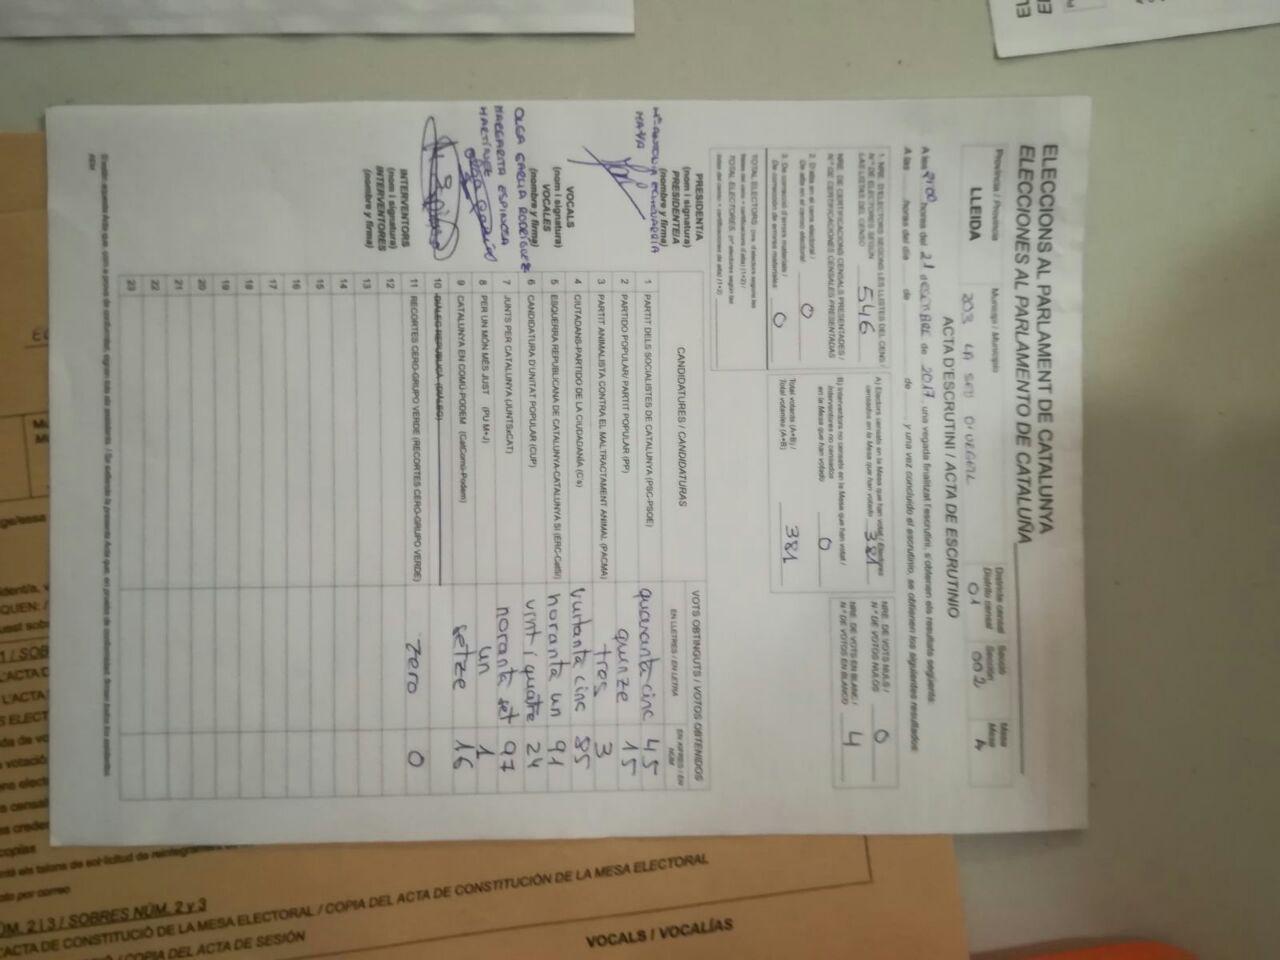 ELECCIONS AL PARLAMENT DE CATALUNYA
ELECCIONES AL PARLAMENTO DE CATALUÑA
Provincia / Provincia
LLEIDA
Municipi / Municipio
203 LA SEU D'URGELL
Districte censal
Distrito censal
01
Secció
Sección
002
Mesa
Mesa
A
ACTA D'ESCRUTINI / ACTA DE ESCRUTINIO
A les 21:00 hores del 21 desembre de 2017, una vegada finalitzat l'escrutini, s'obtenen els resultats següents:
A las ___ horas del día ___ de ___ de ___ y una vez concluido el escrutinio, se obtienen los siguientes resultados:
1. NRE. D'ELECTORS SEGONS LES LLISTES DEL CENS /
Nº DE ELECTORES SEGÚN
LAS LISTAS DEL CENSO 546
NRE. DE CERTIFICACIONS CENSALS PRESENTADES /
Nº DE CERTIFICACIONES CENSALES PRESENTADAS
2. D'alta en el cens electoral /
De alta en el censo electoral: 0
3. De correcció d'errors materials /
De corrección de errores materiales: 0
TOTAL ELECTORS: (nre. d'electors segons les
llistes del cens + certificacions d'alta) (1+2) /
TOTAL ELECTORES: (nº electores según las
listas del censo + certificaciones de alta) (1+2)
A) Electors censats en la Mesa que han votat / Electores
censados en la Mesa que han votado 381
B) Interventors no censats en la Mesa que han votat /
Interventores no censados
en la Mesa que han votado 0
Total votants (A+B) /
Total votantes (A+B) 381
NRE. DE VOTS NULS /
Nº DE VOTOS NULOS 0
NRE. DE VOTS EN BLANC /
Nº DE VOTOS EN BLANCO 4
PRESIDENT/A
(nom i signatura)
PRESIDENTE/A
(nombre y firma)
Mª ANTONIA ECHEVARRIA
MAYA
VOCALS
(nom i signatura)
VOCALES
(nombre y firma)
OLGA GARCIA RODRÍGUEZ
MARGARITA ESPINOSA
MARTÍNEZ
INTERVENTORS
(nom i signatura)
INTERVENTORES
(nombre y firma)
CANDIDATURES / CANDIDATURAS
VOTS OBTINGUTS / VOTOS OBTENIDOS
EN LLETRES / EN LETRA
EN XIFRES / EN NÚM
1 PARTIT DELS SOCIALISTES DE CATALUNYA (PSC-PSOE) quaranta cinc 45
2 PARTIDO POPULAR/ PARTIT POPULAR (PP) quinze 15
3 PARTIT ANIMALISTA CONTRA EL MALTRACTAMENT ANIMAL (PACMA) tres 3
4 CIUTADANS-PARTIDO DE LA CIUDADANÍA (C's) vuitanta cinc 85
5 ESQUERRA REPUBLICANA DE CATALUNYA-CATALUNYA SÍ (ERC-CatSí) noranta un 91
6 CANDIDATURA D'UNITAT POPULAR (CUP) vint i quatre 24
7 JUNTS PER CATALUNYA (JUNTSxCAT) noranta set 97
8 PER UN MÓN MÉS JUST (PU M+J) un 1
9 CATALUNYA EN COMÚ-PODEM (CatComú-Podem) setze 16
10 DIÀLEG REPUBLICÀ (DIÀLEG)
11 RECORTES CERO-GRUPO VERDE (RECORTES CERO-GRUPO VERDE) zero 0
12
13
14
15
16
17
18
19
20
21
22
23
S'estén aquesta Acta que, com a prova de conformitat, signen tots els assistents. / Se extiende la presente Acta que, en prueba de conformidad, firman todos los asistentes
VOCALS / VOCALÍAS
COPIA DEL ACTA DE CONSTITUCIÓN DE LA MESA ELECTORAL
2 I 3 / SOBRES NÚM. 2 y 3
ACTA DE CONSTITUCIÓ DE LA MESA ELECTORAL / COPIA DEL ACTA DE CONSTITUCIÓN DE LA MESA ELECTORAL
COPIA DEL ACTA DE SESIÓN